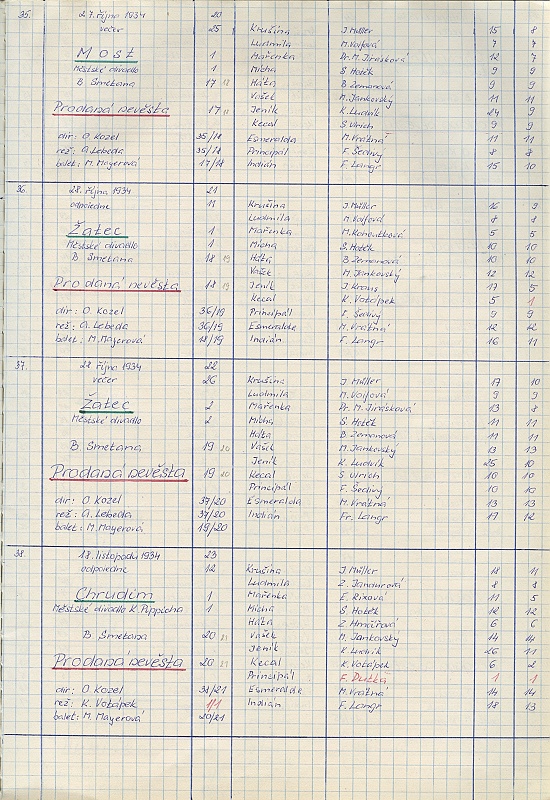 35. 27. října 1934 20
večer 25 Krušina J. Müller 15 8
Ludmila M. Vojfová 7 7
Most 1 Mařenka Dr. M. Jirásková 12 7
Městské divadlo 1 Mícha S. Hoték 9 9
B. Smetana 17 18 Háta B. Zemanová 9 9
Vašek M. Jankovský 11 11
Prodaná nevěsta 17 18 Jeník K. Ludvík 24 9
Kecal S. Ulrich 9 9
dir: O. Kozel 35/18 Esmeralda M. Vrátná 11 11
rež: A. Lebeda 35/18 Principál F. Šedivý 8 8
balet: M. Mayerová 17/18 Indián F. Langr 15 10
36. 28. října 1934 21
odpoledne 11 Krušina J. Müller 16 9
Ludmila M. Vojfová 8 8
Žatec 1 Mařenka M. Kohoutková 5 5
Městské divadlo 1 Mícha S. Hoték 10 10
B. Smetana 18 19 Háta B. Zemanová 10 10
Vašek M. Jankovský 12 12
Prodaná nevěsta 18 19 Jeník J. Kraus 17 5
Kecal K. Votápek 5 1
dir: O. Kozel 36/19 Principál F. Šedivý 9 9
rež: A. Lebeda 36/19 Esmeralda M. Vrátná 12 12
balet: M. Mayerová 18/19 Indián F. Langr 16 11
37. 28. října 1934 22
večer 26 Krušina J. Müller 17 10
Ludmila M. Vojfová 9 9
Žatec 2 Mařenka Dr. M. Jirásková 13 8
Městské divadlo 2 Mícha S. Hoték 11 11
Háta B. Zemanová 11 11
B. Smetana 19 20 Vašek M. Jankovský 13 13
Jeník K. Ludvík 25 10
Prodaná nevěsta 19 20 Kecal S. Ulrich 10 10
Principál F. Šedivý 10 10
dir: O. Kozel 37/20 Esmeralda M. Vrátná 13 13
rež: A. Lebeda 37/20 Indián Fr. Langr 17 12
balet: M. Mayerová 19/20
38. 18. listopadu 1934 23
odpoledne 12 Krušina J. Müller 18 11
Ludmila Z. Janaurová 8 8
Chrudim 1 Mařenka E. Rixová 11 5
Městské divadlo K. Pippicha 1 Mícha S. Hoték 12 12
Háta Z. Hmářová 6 6
B. Smetana 20 21 Vašek M. Jankovský 14 14
Jeník K. Ludvík 26 11
Prodaná nevěsta 20 21 Kecal K. Votápek 6 2
Principál F. Dutka 1 1
dir: O. Kozel 38/21 Esmeralda M. Vrátná 14 14
rež: K. Votápek 1/1 Indián F. Langr 18 13
balet: M. Mayerová 20/21